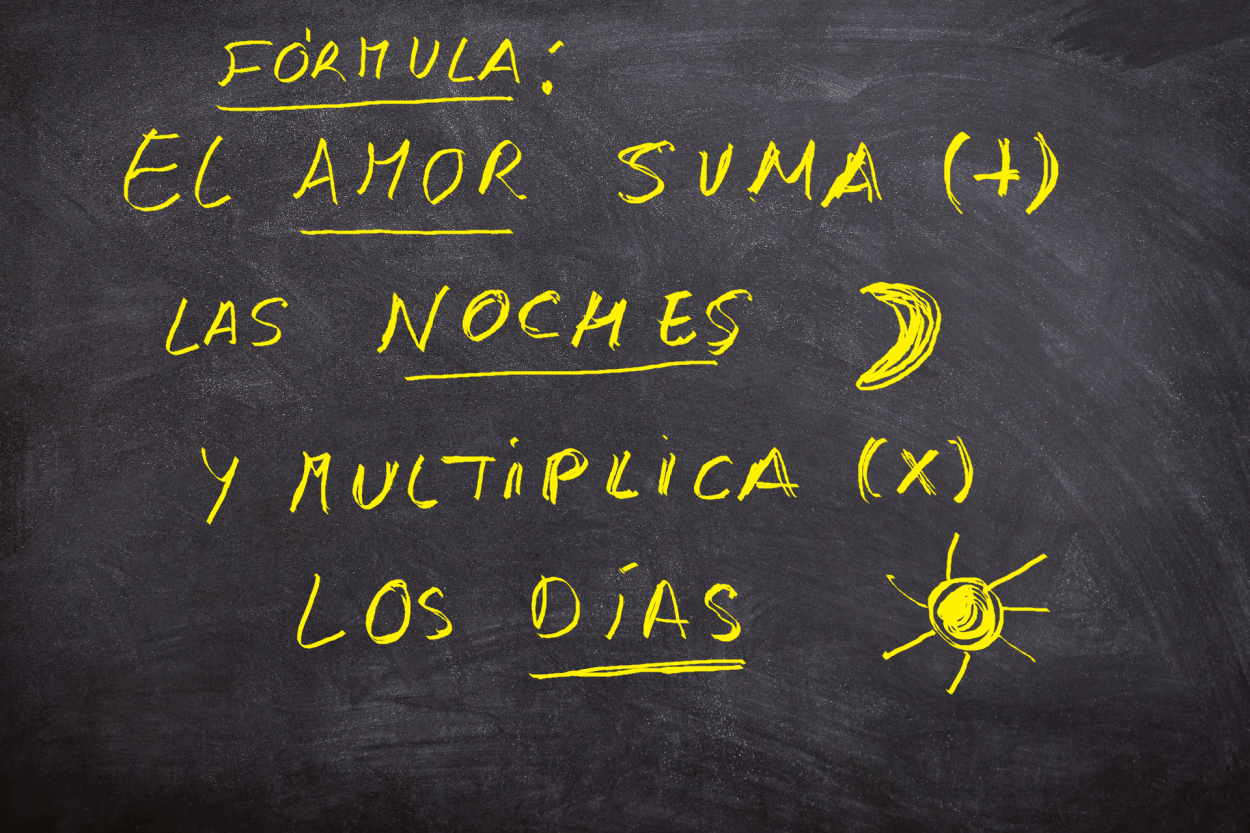 FÓRMULA:
EL AMOR SUMA (+)
LAS NOCHES
Y MULTIPLICA (X)
LOS DÍAS